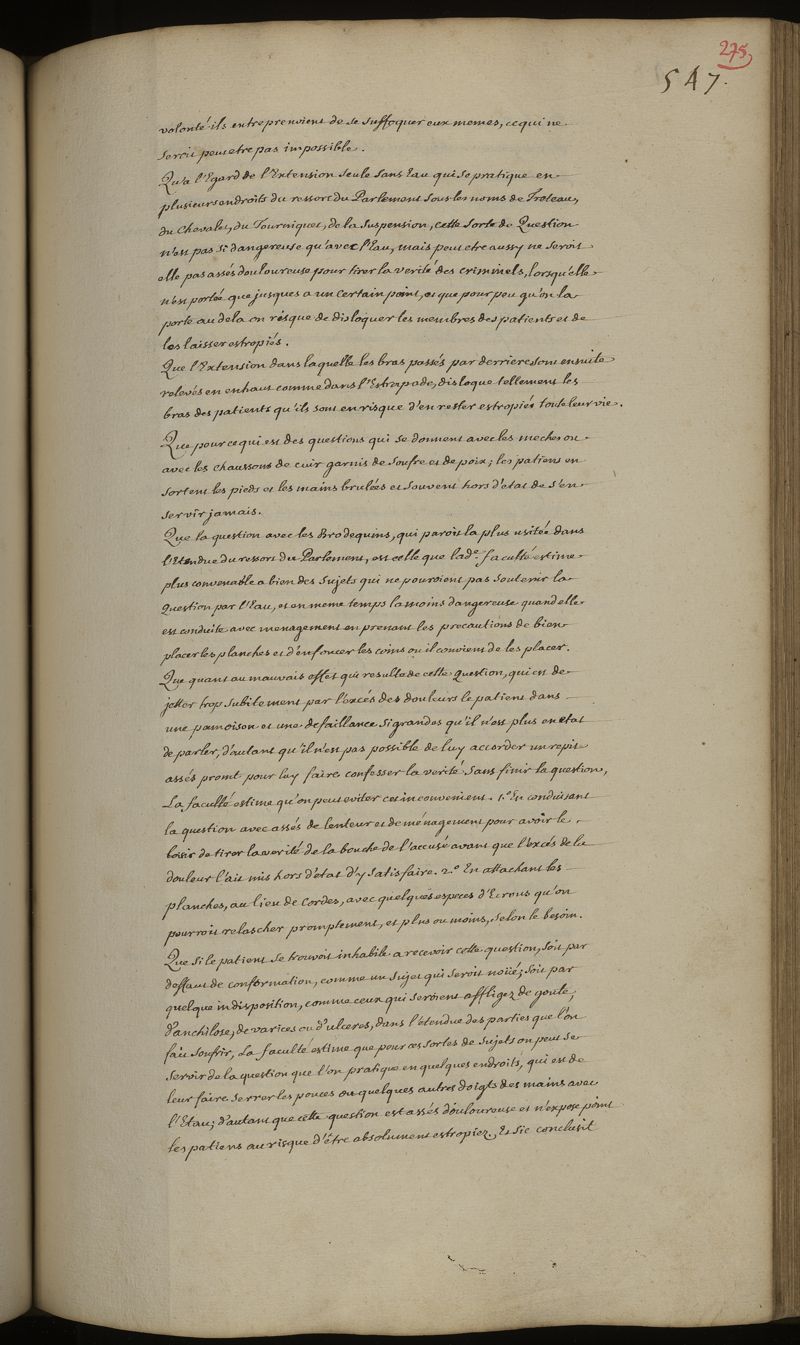 275
547.
volonté ils entreprenoient de se suffoquer eux memes, ce qui ne
seroit peut etre pas impossible.
Qu'a l'Egard de l'Extension seule sans Eau qui se pratique en
plusieurs endroits du ressort du Parlement sous les noms de Troteau,
du Chevalet, du Tourniquet, de la Suspension, cette sorte de Question
n'est pas si dangereuse qu'avec l'Eau, mais peut etre aussy ne seroit
elle pas assés douloureuse pour tirer la verité des criminels, lorsqu'elle
n'est portée que jusques a un certain point, et que pour peu qu'on la
porte au dela on risque de disloquer les membres des patients et de
les laisser estropiés.
Que l'Extension dans laquelle les bras passés par derriere sont ensuite
relevés en enhaut comme dans l'Estrapade, disloque tellement les
bras des patients qu'ils sont en risque d'en rester estropiés toute leur vie.
Que pour ce qui est des questions qui se donnent avec les meches ou
avec les chaussons de cuir garnis de soufre et de poix; les patiens en
sortent les pieds et les mains brulées et souvent hors d'etat de s'en
servir jamais.
Que la question avec les Brodequins, qui paroit la plus usitée dans
l'Etendue du ressort du Parlement, est celle que lade. faculté estime
plus convenable a bien des Sujets qui ne pouroient pas soutenir la
Question par l'Eau, et en meme temps la moins dangereuse quand elle
est conduite avec menagement en prenant les precautions de bien
placer les planches et d'enfoncer les coins ou il convient de les placer.
Que quant au mauvais effet qui resulte de cette Question, qui est de
jetter trop subitement par l'excés des douleurs le patient dans
une pamoison et une defaillance si grandes qu'il n'est plus en etat
de parler, d'autant qu'il n'est pas possible de luy accorder un repit
assés promt pour luy faire confesser la verité sans finir la question,
La faculté estime qu'on peut eviter cet inconvenient. 1.º En conduisant
la question avec assés de lenteur et de ménagement pour avoir le
loisir de tirer la verité de la bouche de l'accusé avant que l'excés de la
douleur l'ait mis hors d'etat d'y satisfaire. 2.º En attachant les
planches, au lieu de Cordes, avec quelques especes d'Ecrous qu'on
pourroit relascher promptement, et plus ou moins, selon le besoin.
Que si le patient se trouvoit inhabile a recevoir cette question, soit par
deffaut de conformation, comme un Sujet qui seroit noüé; soit par
quelque indisposition, comme ceux qui seroient affligez de goute,
d'anchilose, de varices ou d'ulceres, dans l'étendue des parties que l'on
fait soufrir, La faculté estime que pour ces sortes de Sujets on peut se
servir de la question que l'on pratique en quelques endroits, qui est de
leur faire serrer les pouces ou quelques autres doigts des mains avec
l'Etau; d'autant que cette question est assés douloureuse et n'expose point
les patiens au risque d'être absolument estropiez. Et sic conclusit